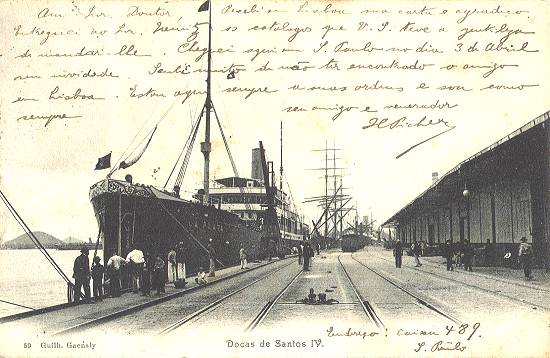 Am.º Snr. Doutor, Recebi em Lisboa sua carta e agradeço.
Entreguei ao Snr. os catalogos que V. S. teve a
de mandar-lhe. Cheguei aqui em S. Paulo no dia 3 de Abril
sem novidade. Senti muito de não ter encontrado o amigo
em Lisboa. Estou aqui sempre a suas ordens e sou como
sempre seu amigo e venerador
59 Guilh. Gaensly
Docas de Santos IV.
Endereço: Caixa 489.
S. Paulo